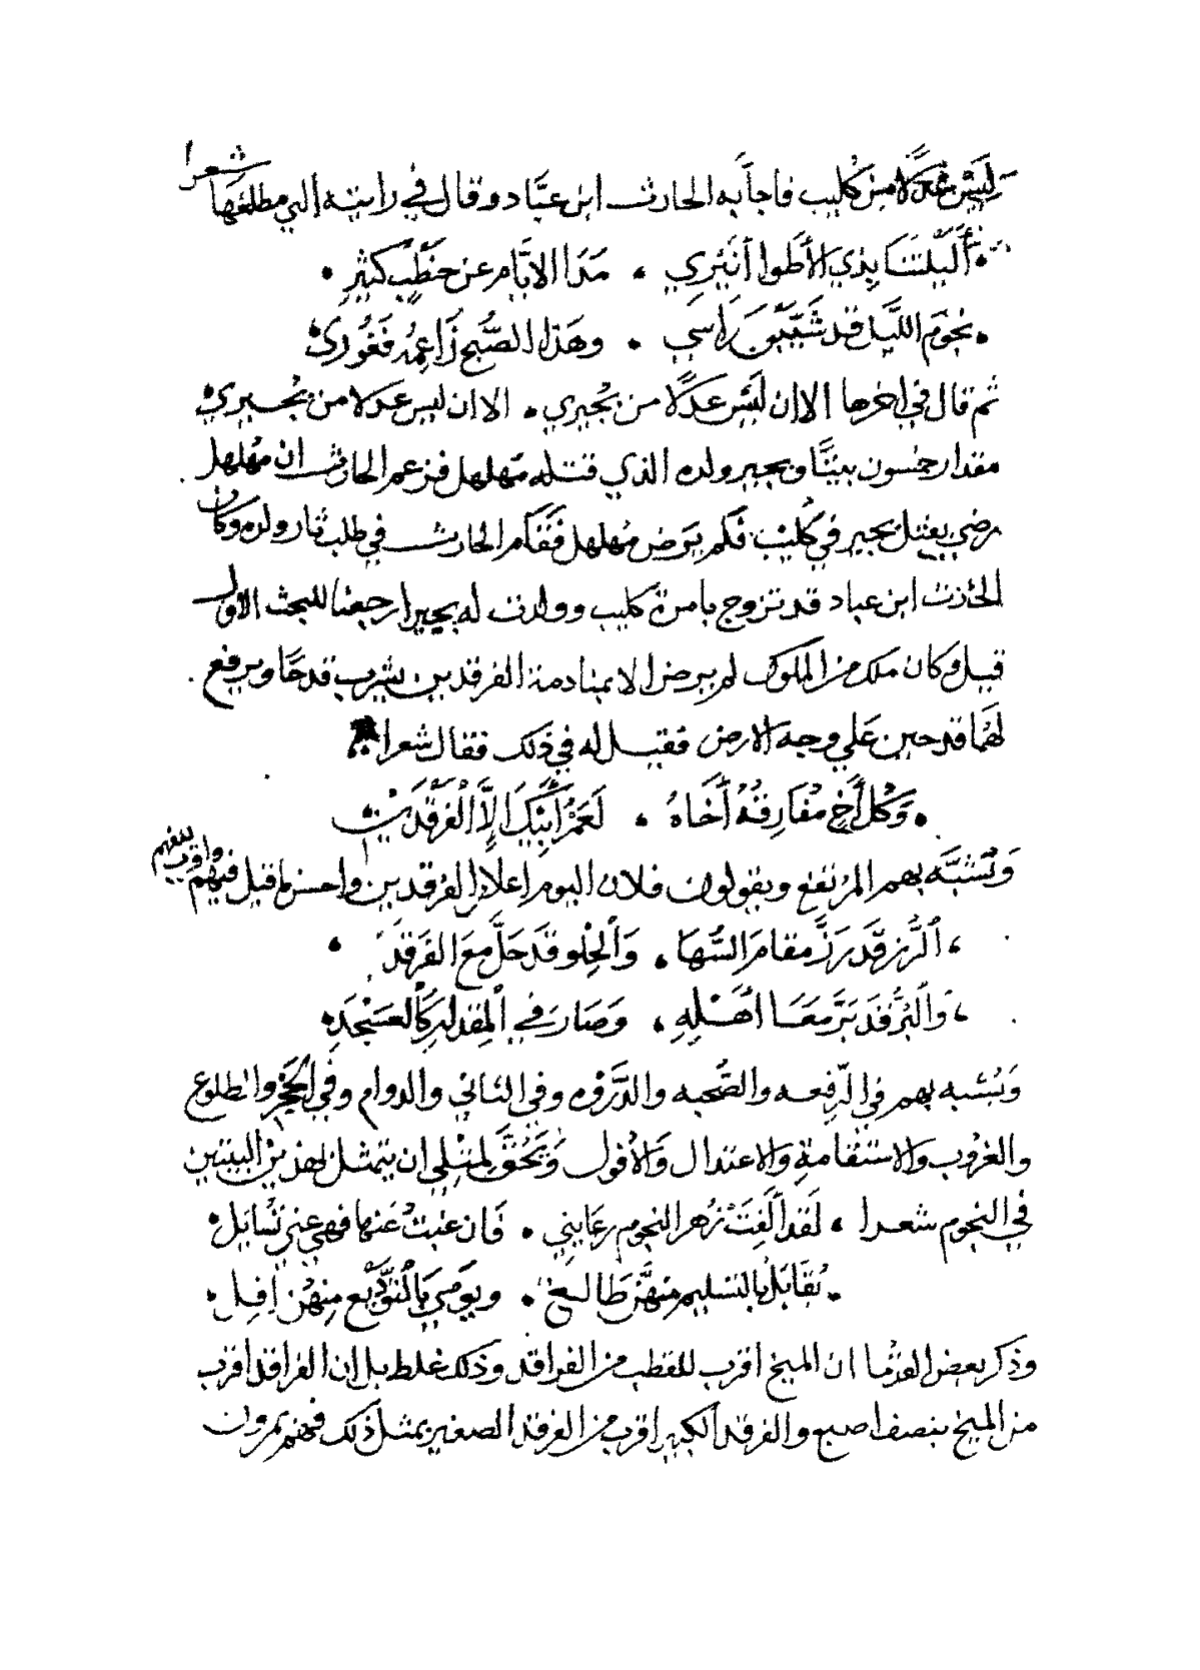 لَيْسَ عدلًا من كُليب فاجابه الحارث ابن عبَّاد وقال في رايته الي مطلعها شعرا
أَلَيْلَتَنَا بِذي الأَطوا أَنيْرِي ، مَدَا الايَّام عن خَطْبٍ كثيرِ
نجُوم اللَّيل قد شَيَّبْنَ رَاسَي . وهَذا الصُّبح زَاعِمُ فَغُورِى
ثم قال في اخرها الا ان لَيْسَ عَدلًا من بُجيرِي . الا ان ليس عدلا من بُجيري
مقدار خمسون بيتًا وبجير ولده الذي قتله مهلهل فزعم الحارث ان مهلهل
رضي بقتل بجير في كُليب فلم يرض مهلهل فَقَام الحارث في طلب ثار ولده وكان
الحارث ابن عباد قد تزوج بامرة كليب وولدت له بجيرا رجعنا للبحث الاول
قيل وكان ملك من الملوك لم يرض الا بمنادمة الفرقدين يشرب قدحًا ويرفع
لهما قدحين عَلي وجه الارض فقيل له في ذلك فقال شعرا
وَكُل أَخٍ مُفَارِقُهُ أَخَاهُ ، لَعَمْرُ أَبِيْكَ اِلَّا الْفَرْقَدَيْنِ
وَتشبَّه بهم المرتفع ويقولون فلان اليوم اعلا من الفرقدين واحسن ما قيل فيهم واقرب للفهم
، اَلرُّز قَد رَزَّ مقامَ السُّهَا ، وَالْحِلو قَد حَلَّ مَعَ الفَرقَد
، وَالبُرُّ قَد بَرَّ مَعَا اَهْلِهِ ، وَصَارَ في الْمِقدار كَالعسْجَدِ
وَتُشبه بهم في الرِّفعه والصُّحبه والذَّروه وفي الثاني والدوام وفي الحجز والطلوع
والغرُوب والاستقامةِ والاعتدال وَالاُفول وَيَحُقَّ لمثلي ان يتمثل بهذين البيتين
في النجوم شعرا ، لَقَد أَلِفَتْ زُهر النجوم رعَايتي . فَان غبْتُ عَنها فهي عني تُسَايل
تُقَابَل بالتسليم منهنَّ طَالع . ويَومي بالتوَّدِيع مِنهُن اَفِل
وذكر بعض القدما ان الميخ اقرب للقطب من الفراقد وذلك غلط بل ان الفراقد اقرب
من الميخ بنصف اصبع والفرقد الكبير اقرب من الفرقد الصغير بمثل ذلك فهم يمرون